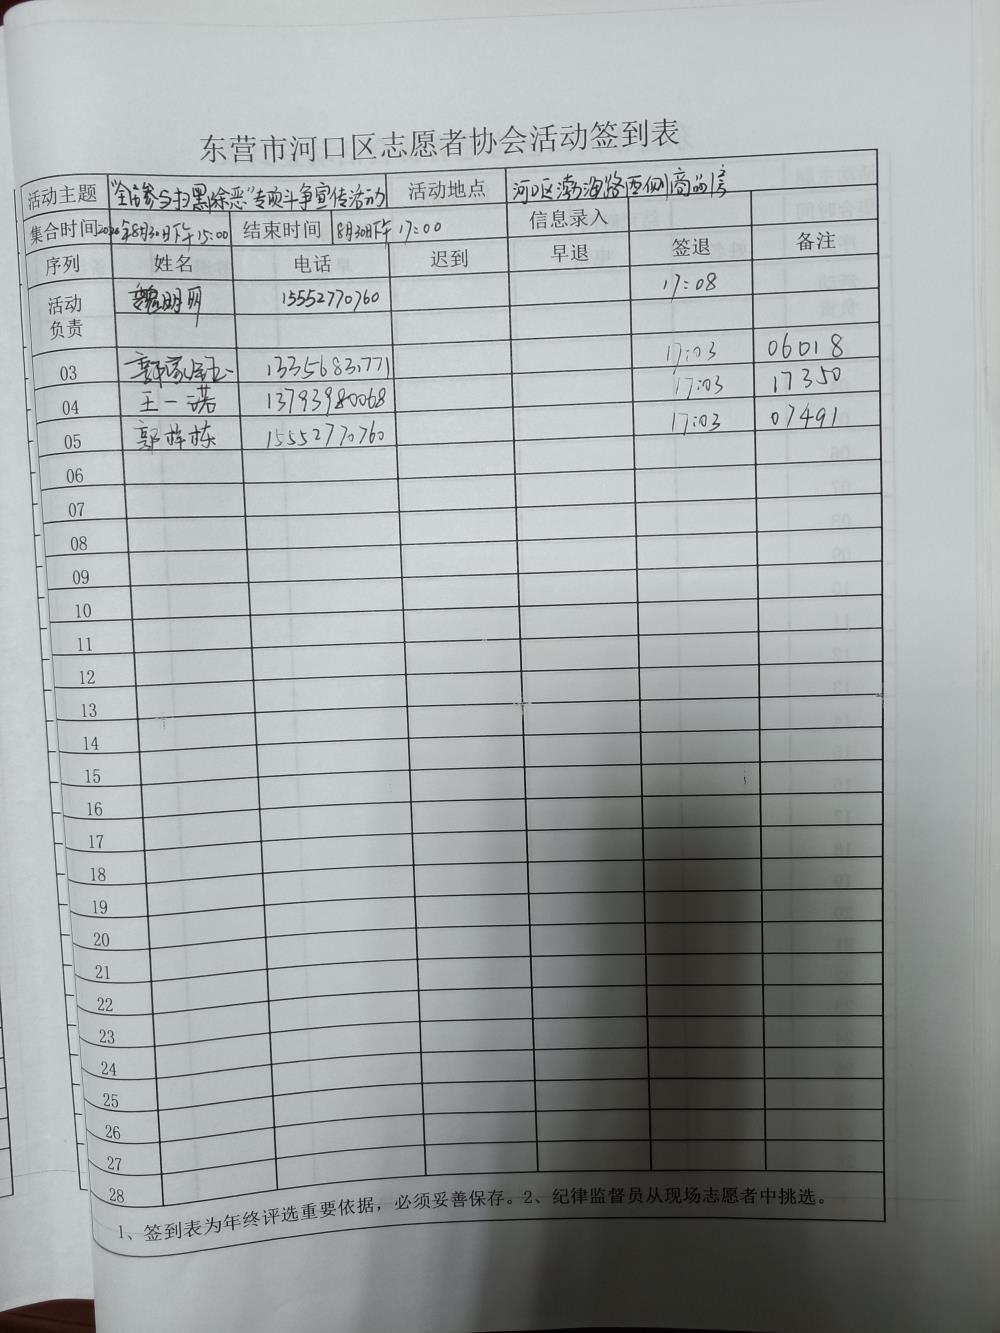 东营市河口区志愿者协会活动签到表
活动主题 "全民参与扫黑除恶"专项斗争宣传活动 活动地点 河口区渤海路西侧商品房
集合时间 2020年8月30日下午15:00 结束时间 8月30日下午17:00 信息录入
序列 姓名 电话 迟到 早退 签退 备注
活动负责 魏明丽 15552770760 17:08
03 13356832771 17:03 06018
04 王一诺 13793980068 17:03 17350
05 郭梓栋 15552770760 17:03 07491
06
07
08
09
10
11
12
13
14
15
16
17
18
19
20
21
22
23
24
25
26
27
28
1、签到表为年终评选重要依据，必须妥善保存。2、纪律监督员从现场志愿者中挑选。